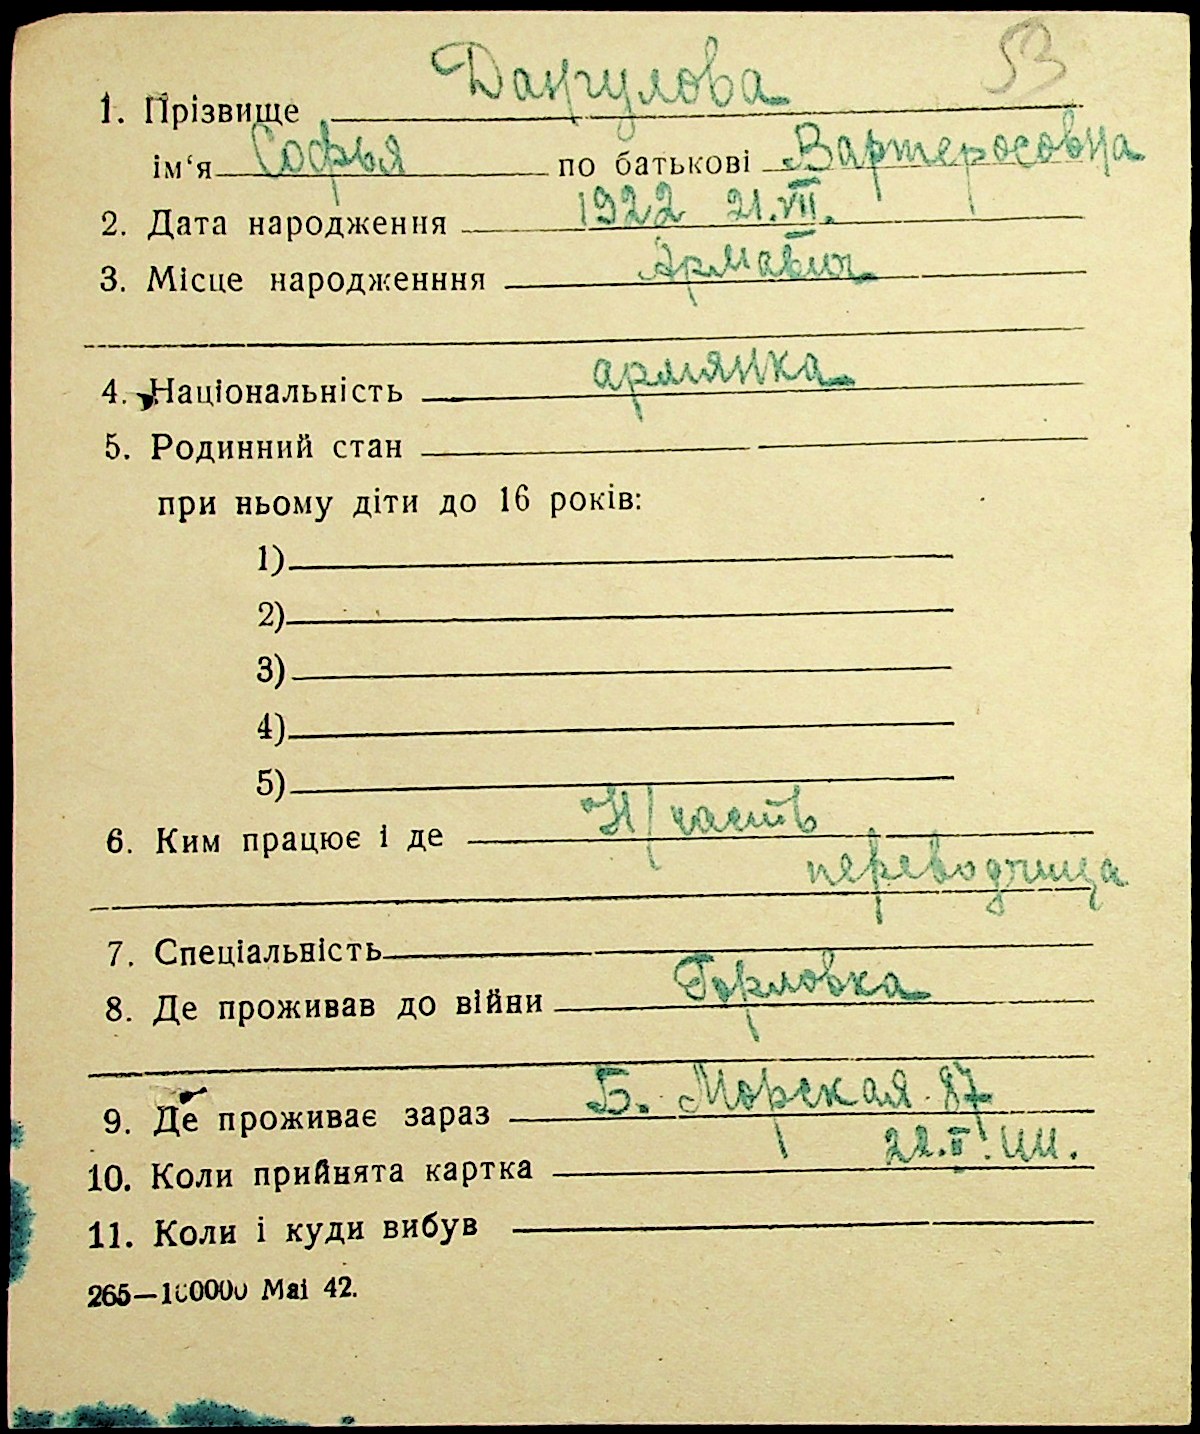 53
1. Прізвище Дангулова
ім‘я Софья по батькові Вартеросовна
2. Дата народження 1922 21.VII.
3. Місце народженння Армавир
4. Національність армянка
5. Родинний стан
при ньому діти до 16 років:
1)
2)
3)
4)
5)
6. Ким працює і де Н/часть
переводчица
7. Спеціальність
8. Де проживав до війни Горловка
9. Де проживає зараз Б. Морская 87
10. Коли прийнята картка 22.II.
11. Коли і куди вибув
265—100000 Mai 42.